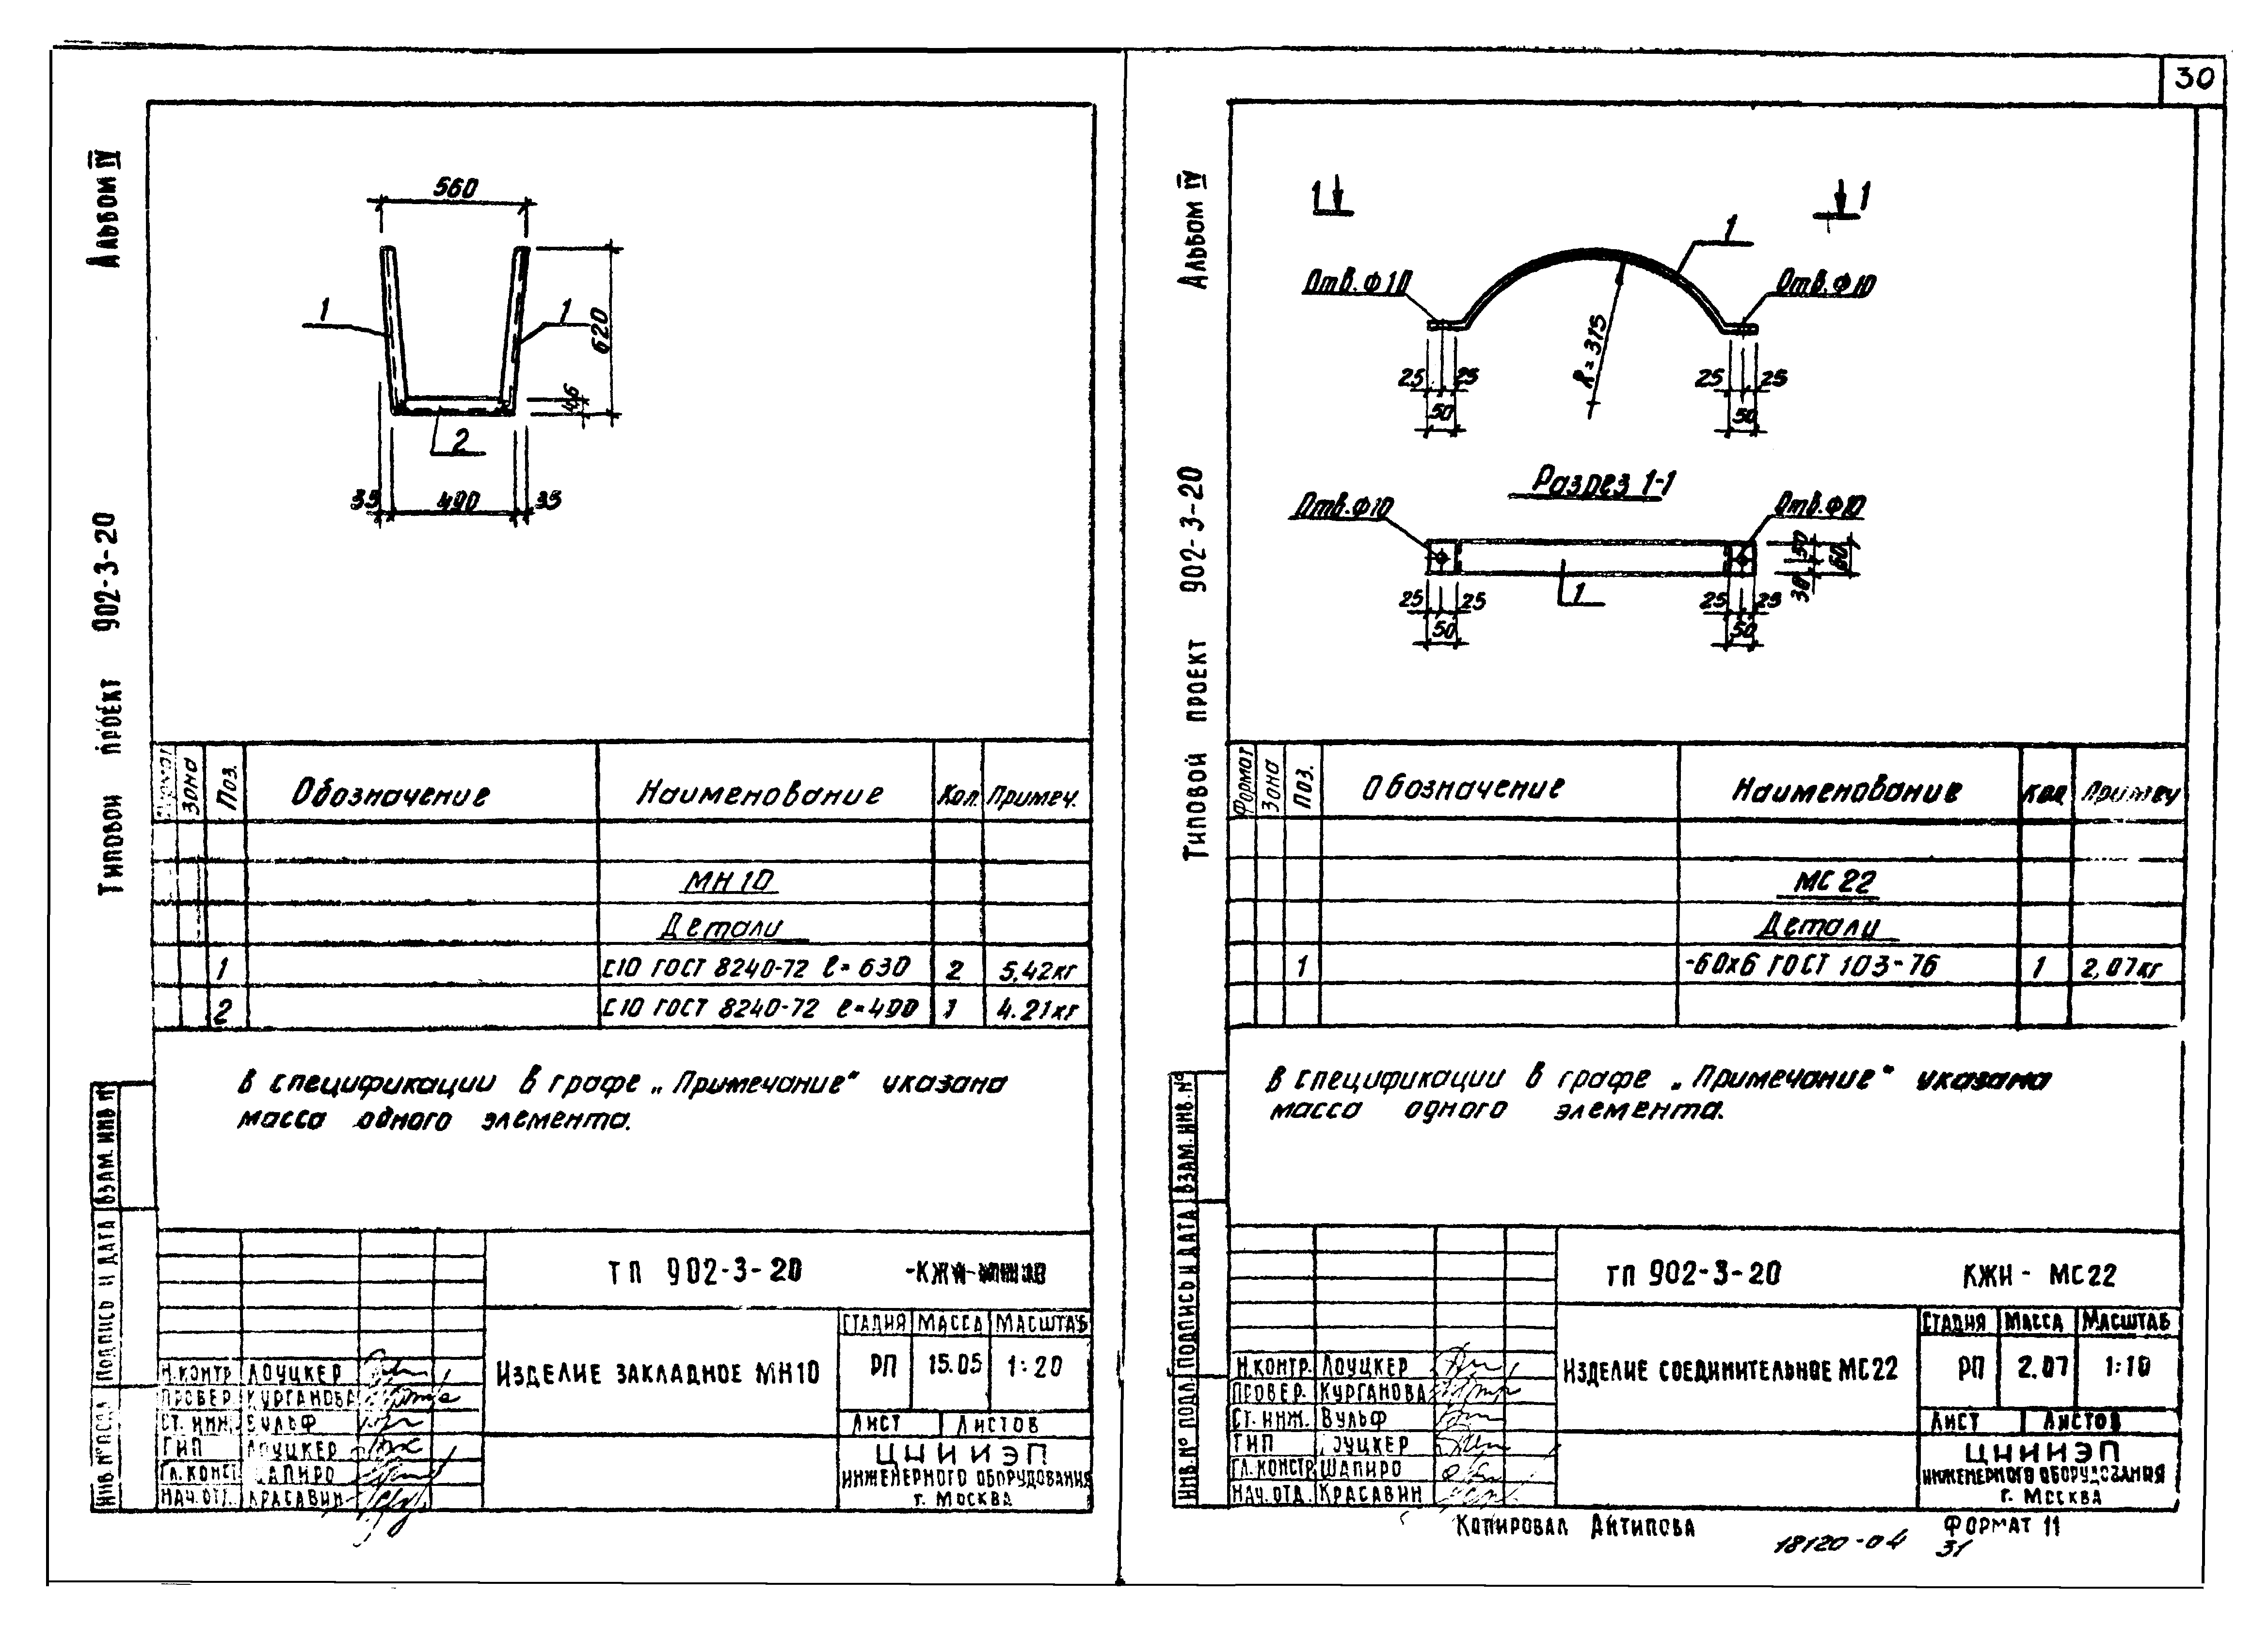 30
Альбом IV
Типовой проект 902-3-20
560
1
1
620
46
2
35
490
35
Формат
Зона
Поз.
Обозначение
Наименование
Кол.
Примеч.
МН 10
Детали
1 С10 ГОСТ 8240-72 ℓ=630 2 5,42кг
2 С10 ГОСТ 8240-72 ℓ=490 1 4.21кг
В спецификации в графе „Примечание" указана
масса одного элемента.
ТП 902-3-20 -КЖИ-МН10
Изделие закладное МН10
Стадия Масса Масштаб
РП 15.05 1:20
Лист Листов
ЦНИИЭП
инженерного оборудования
г. Москва
Н.контр Лоуцкер
Провер. Курганова
Ст. инж. Вульф
ГИП Лоуцкер
Гл. конст. Шапиро
Нач. отд. Красавин
Инв. № подл. Подпись и дата Взам. инв №
Альбом IV
Типовой проект 902-3-20
1
1
1
Отв. ф10
Отв. ф10
R=315
25 25
50
25 25
50
Разрез 1-1
Отв. ф10
Отв. ф10
30
60
30
1
25 25
50
25 25
50
Формат
Зона
Поз.
Обозначение
Наименование
Кол
Примеч
МС 22
Детали
1 -60х6 ГОСТ 103-76 1 2,07кг
В спецификации в графе „Примечание" указана
масса одного элемента.
ТП 902-3-20 КЖИ - МС22
Изделие соединительное МС22
Стадия Масса Масштаб
РП 2.07 1:10
Лист Листов
ЦНИИЭП
инженерного оборудования
г. Москва
Н.контр. Лоуцкер
Провер. Курганова
Ст. инж. Вульф
ГИП Лоуцкер
Гл. констр Шапиро
Нач. отд. Красавин
Инв. № подл Подпись и дата Взам. инв. №
Копировал Антипова
Формат 11
18120-04 31